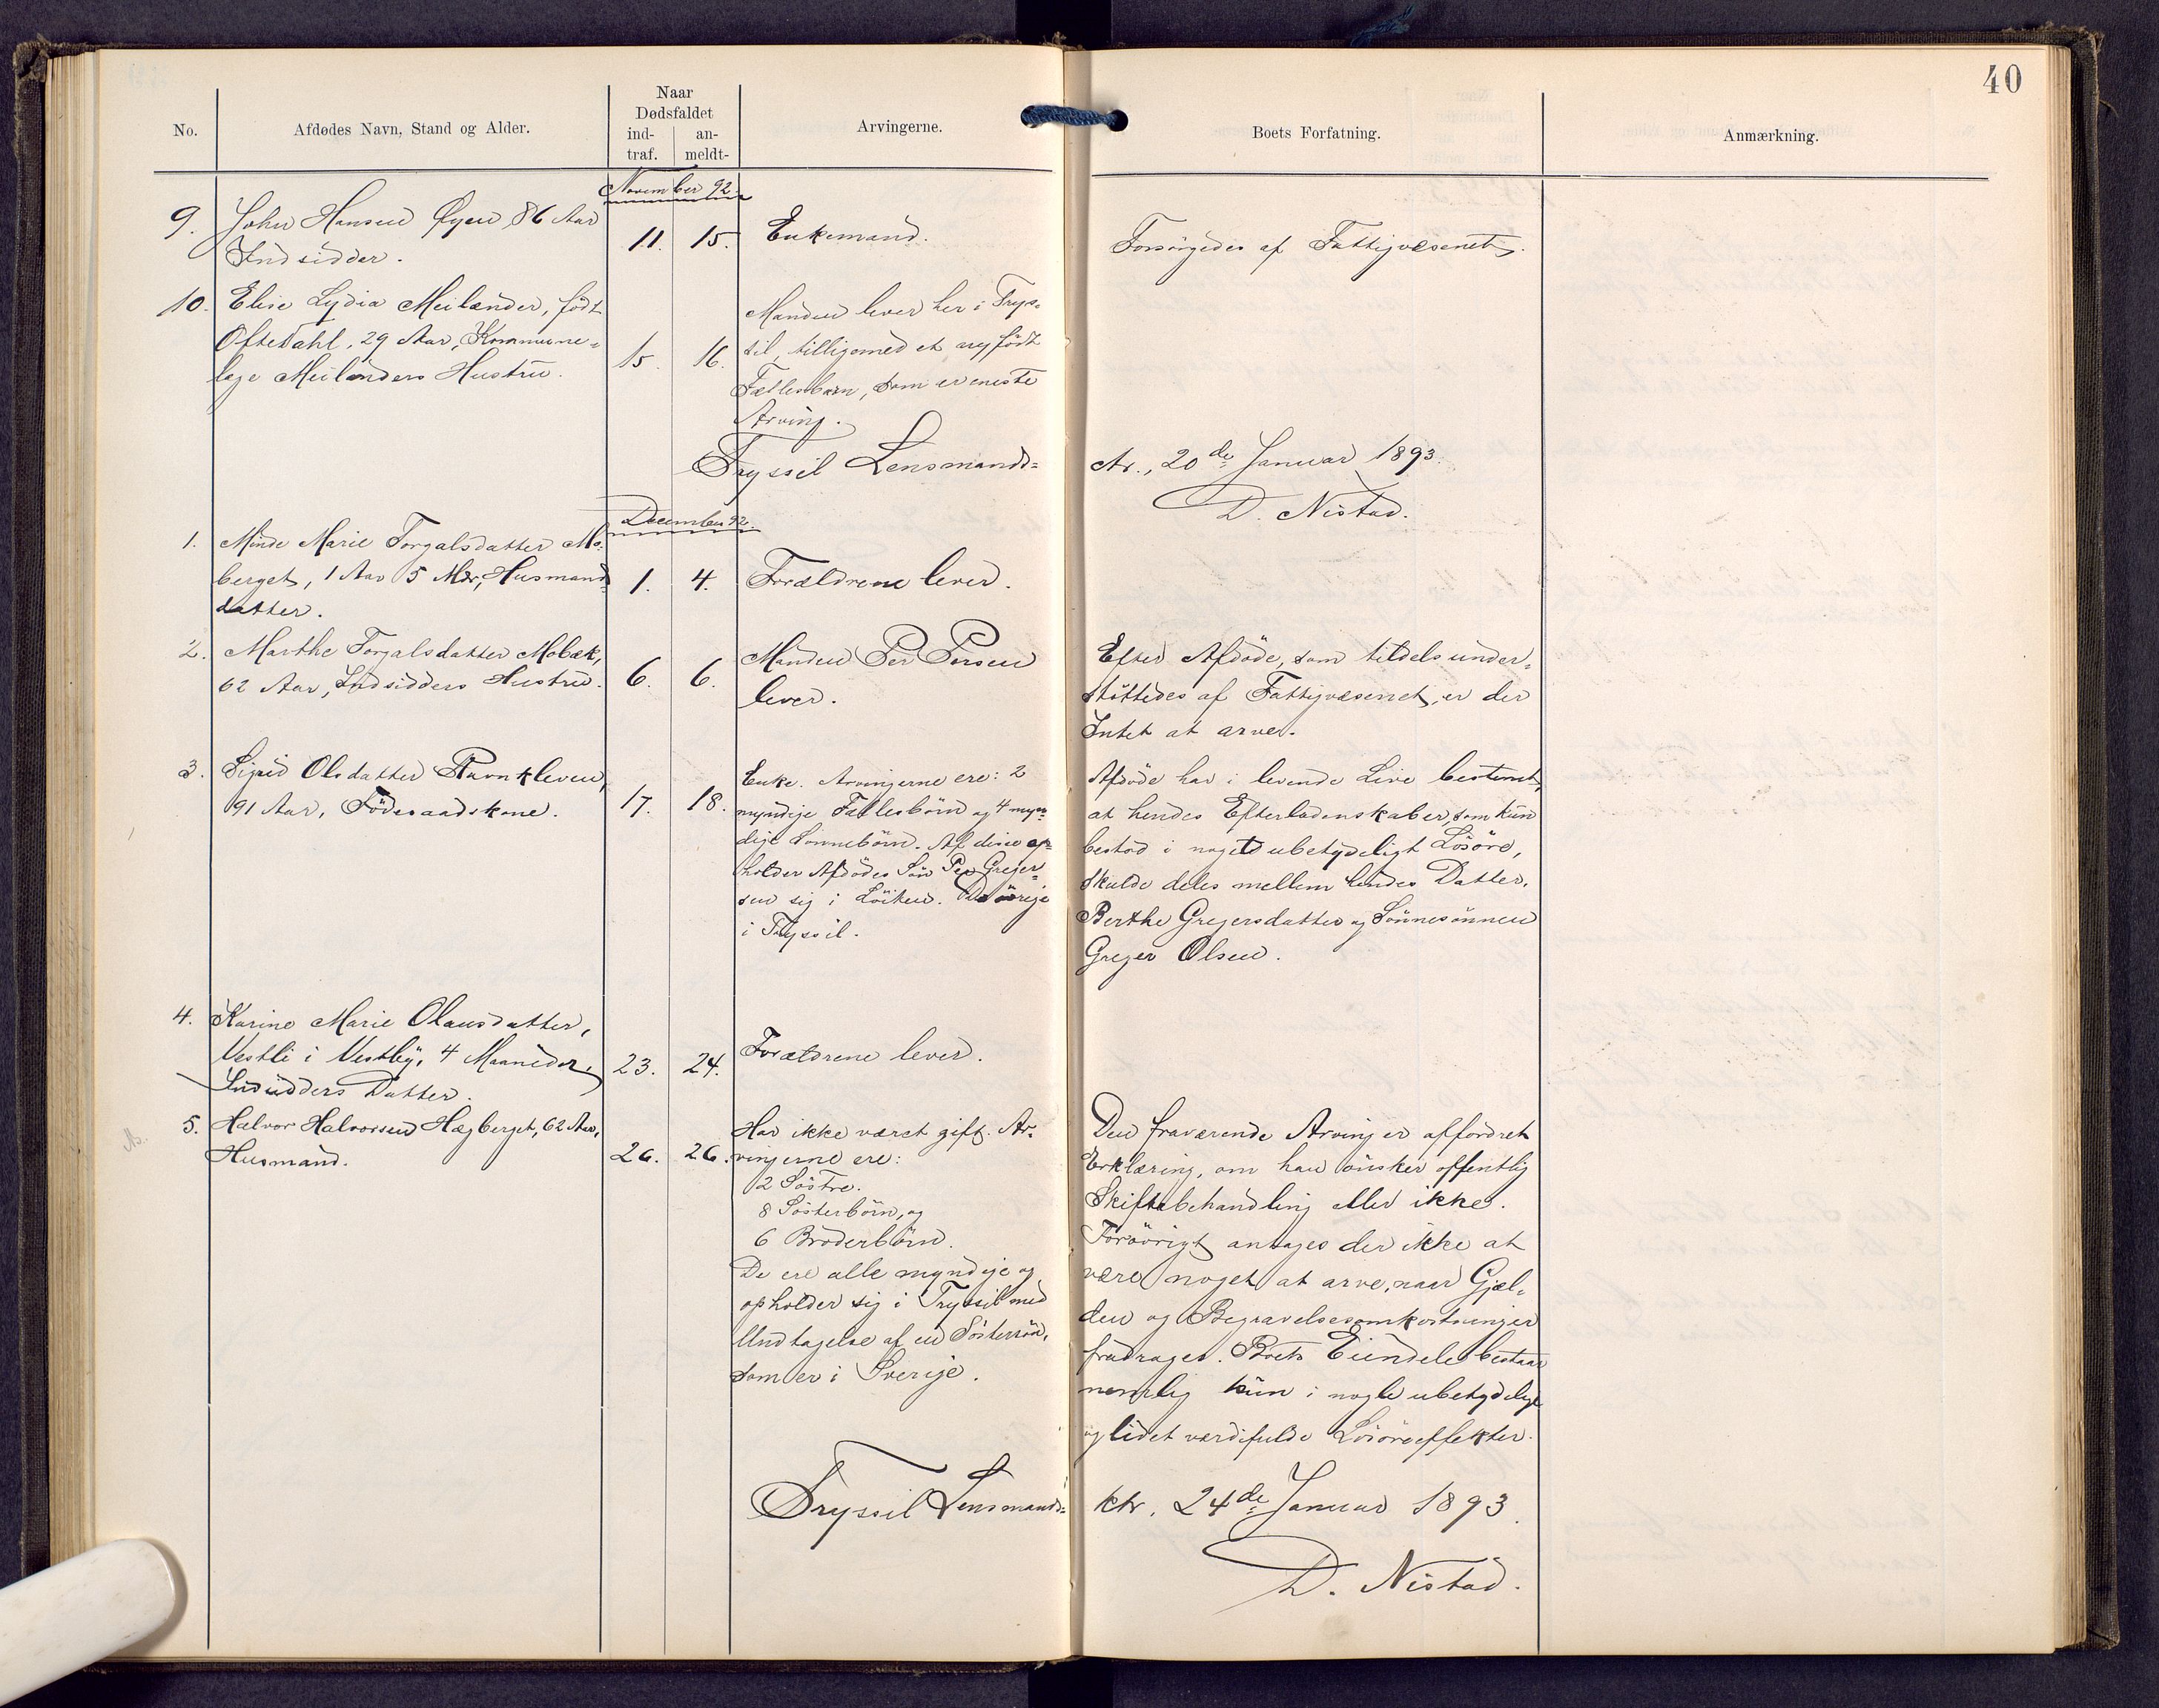 40
Naar
Dødsfaldet
No.
Afdødes Navn, Stand og Alder.
ind-
traf.
an-
meldt-
Arvingerne.
Boets Forfatning.
Anmærkning.
November 92.
9. John Hansen Øyen, 86 Aar
Indsidder.
11. 15. Enkemand.
Forsörgedes af Fattigvæsenet.
10. Elise Lydia Meilænder, födt
Oftedahl, 29 Aar, Kommune-
læge Meilænders Hustru.
15. 16.
Manden lever her i Trys-
sil, tilligemed et nyfödt
Fællesbarn, som er eneste
Arving.
Tryssil Lensmands-
ktr., 20de Januar 1893.
D. Nistad.
December 92.
1. Minde Marie Torgalsdatter Mo-
berget, 1 Aar 5 Mdr, Husmands-
datter.
1. 4. Forældrene lever.
2. Marthe Torgalsdatter Mobæk,
62 Aar, Indsidders Hustru.
6. 6.
Manden Per Persen
lever.
Efter Afdöde, som tildels under-
stöttedes af Fattigvæsenet, er der
Intet at arve.
3. Sigrid Olsdatter Ravnkleven,
91 Aar, Föderaadskone.
17. 18.
Enke. Arvingerne ere: 2
myndige Fællesbörn og 4 myn-
dige Sönnebörn. Af disse op-
holder Afdödes Sön Per Greger-
sen sig i Löiten. De övrige
i Tryssil.
Afdöde har i levende Live bestemt,
at hendes Efterladenskaber, som kun
bestod i noget ubetydeligt Lösöre,
skulde deles mellem hendes Datter,
Berthe Gregersdatter og Sönnesönnen
Greger Olsen.
4. Karine Marie Olausdatter,
Vestli i Vestby, 4 Maaneder,
Indsidders Datter.
23. 24. Forældrene lever.
5. Halvor Halvorsen Hægberget, 62 Aar,
Husmand.
26. 26.
Har ikke været gift. Ar-
vingerne ere:
2 Söstre.
8 Sösterbörn, og
6 Broderbörn.
De ere alle myndige og
opholder sig i Tryssil med
Undtagelse af en Söstersön,
som er i Sverige.
Den fraværende Arving er affordret
Erklæring, om han önsker offentlig
Skiftebehandling eller ikke.
Forövrigt antages der ikke at
være noget at arve, naar Gjæl-
den og Begravelsesomkostninger
fradrages. Boets Eiendele bestaar
nemlig kun i nogle ubetydelige
og lidet værdifulde Lösöreeffekter.
Tryssil Lensmands-
ktr. 24de Januar 1893.
D. Nistad.